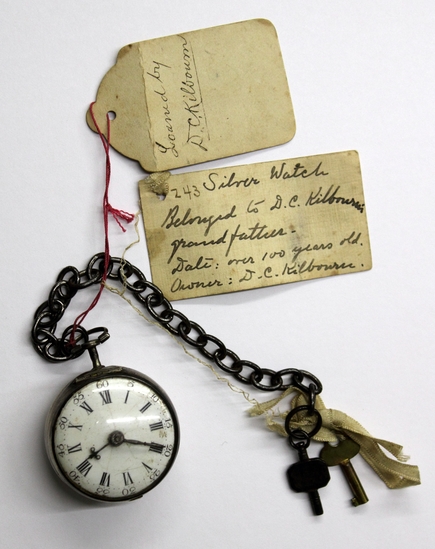 Loaned by
D.C. Kilbourn
243 Silver Watch
Belonged to D.C. Kilbourn's
grandfather.
Date: over 100 years old.
Owner: D.C. Kilbourn.
60
XII
I
II
III
IIII
V
VI
VII
VIII
X